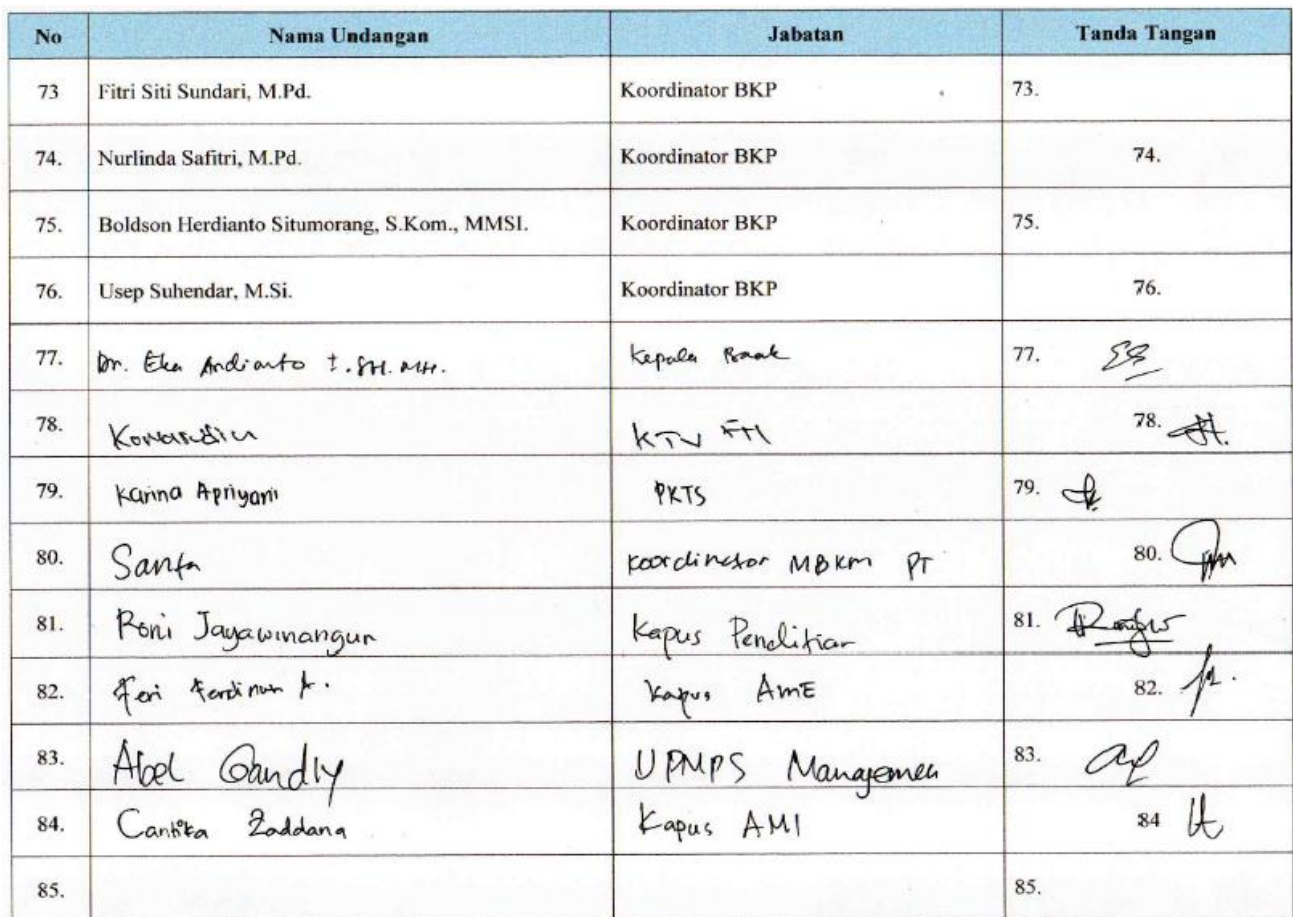 No Nama Undangan Jabatan Tanda Tangan
73 Fitri Siti Sundari, M.Pd. Koordinator BKP 73.
74. Nurlinda Safitri, M.Pd. Koordinator BKP 74.
75. Boldson Herdianto Situmorang, S.Kom., MMSI. Koordinator BKP 75.
76. Usep Suhendar, M.Si. Koordinator BKP 76.
77. Dr. Eka Andianto I. SH. MH. Kepala Baak 77.
78. KTU 78.
79. Karina Apriyani PKTS 79.
80. Santa Koordinator MBKM PT 80.
81. Roni Jayawinangun Kapus Penelitian 81.
82. Feri Ferdinan A. Kapus AME 82.
83. Abel Gandhy UPMPS Manajemen 83.
84. Cantika Zaddana Kapus AMI 84
85. 85.